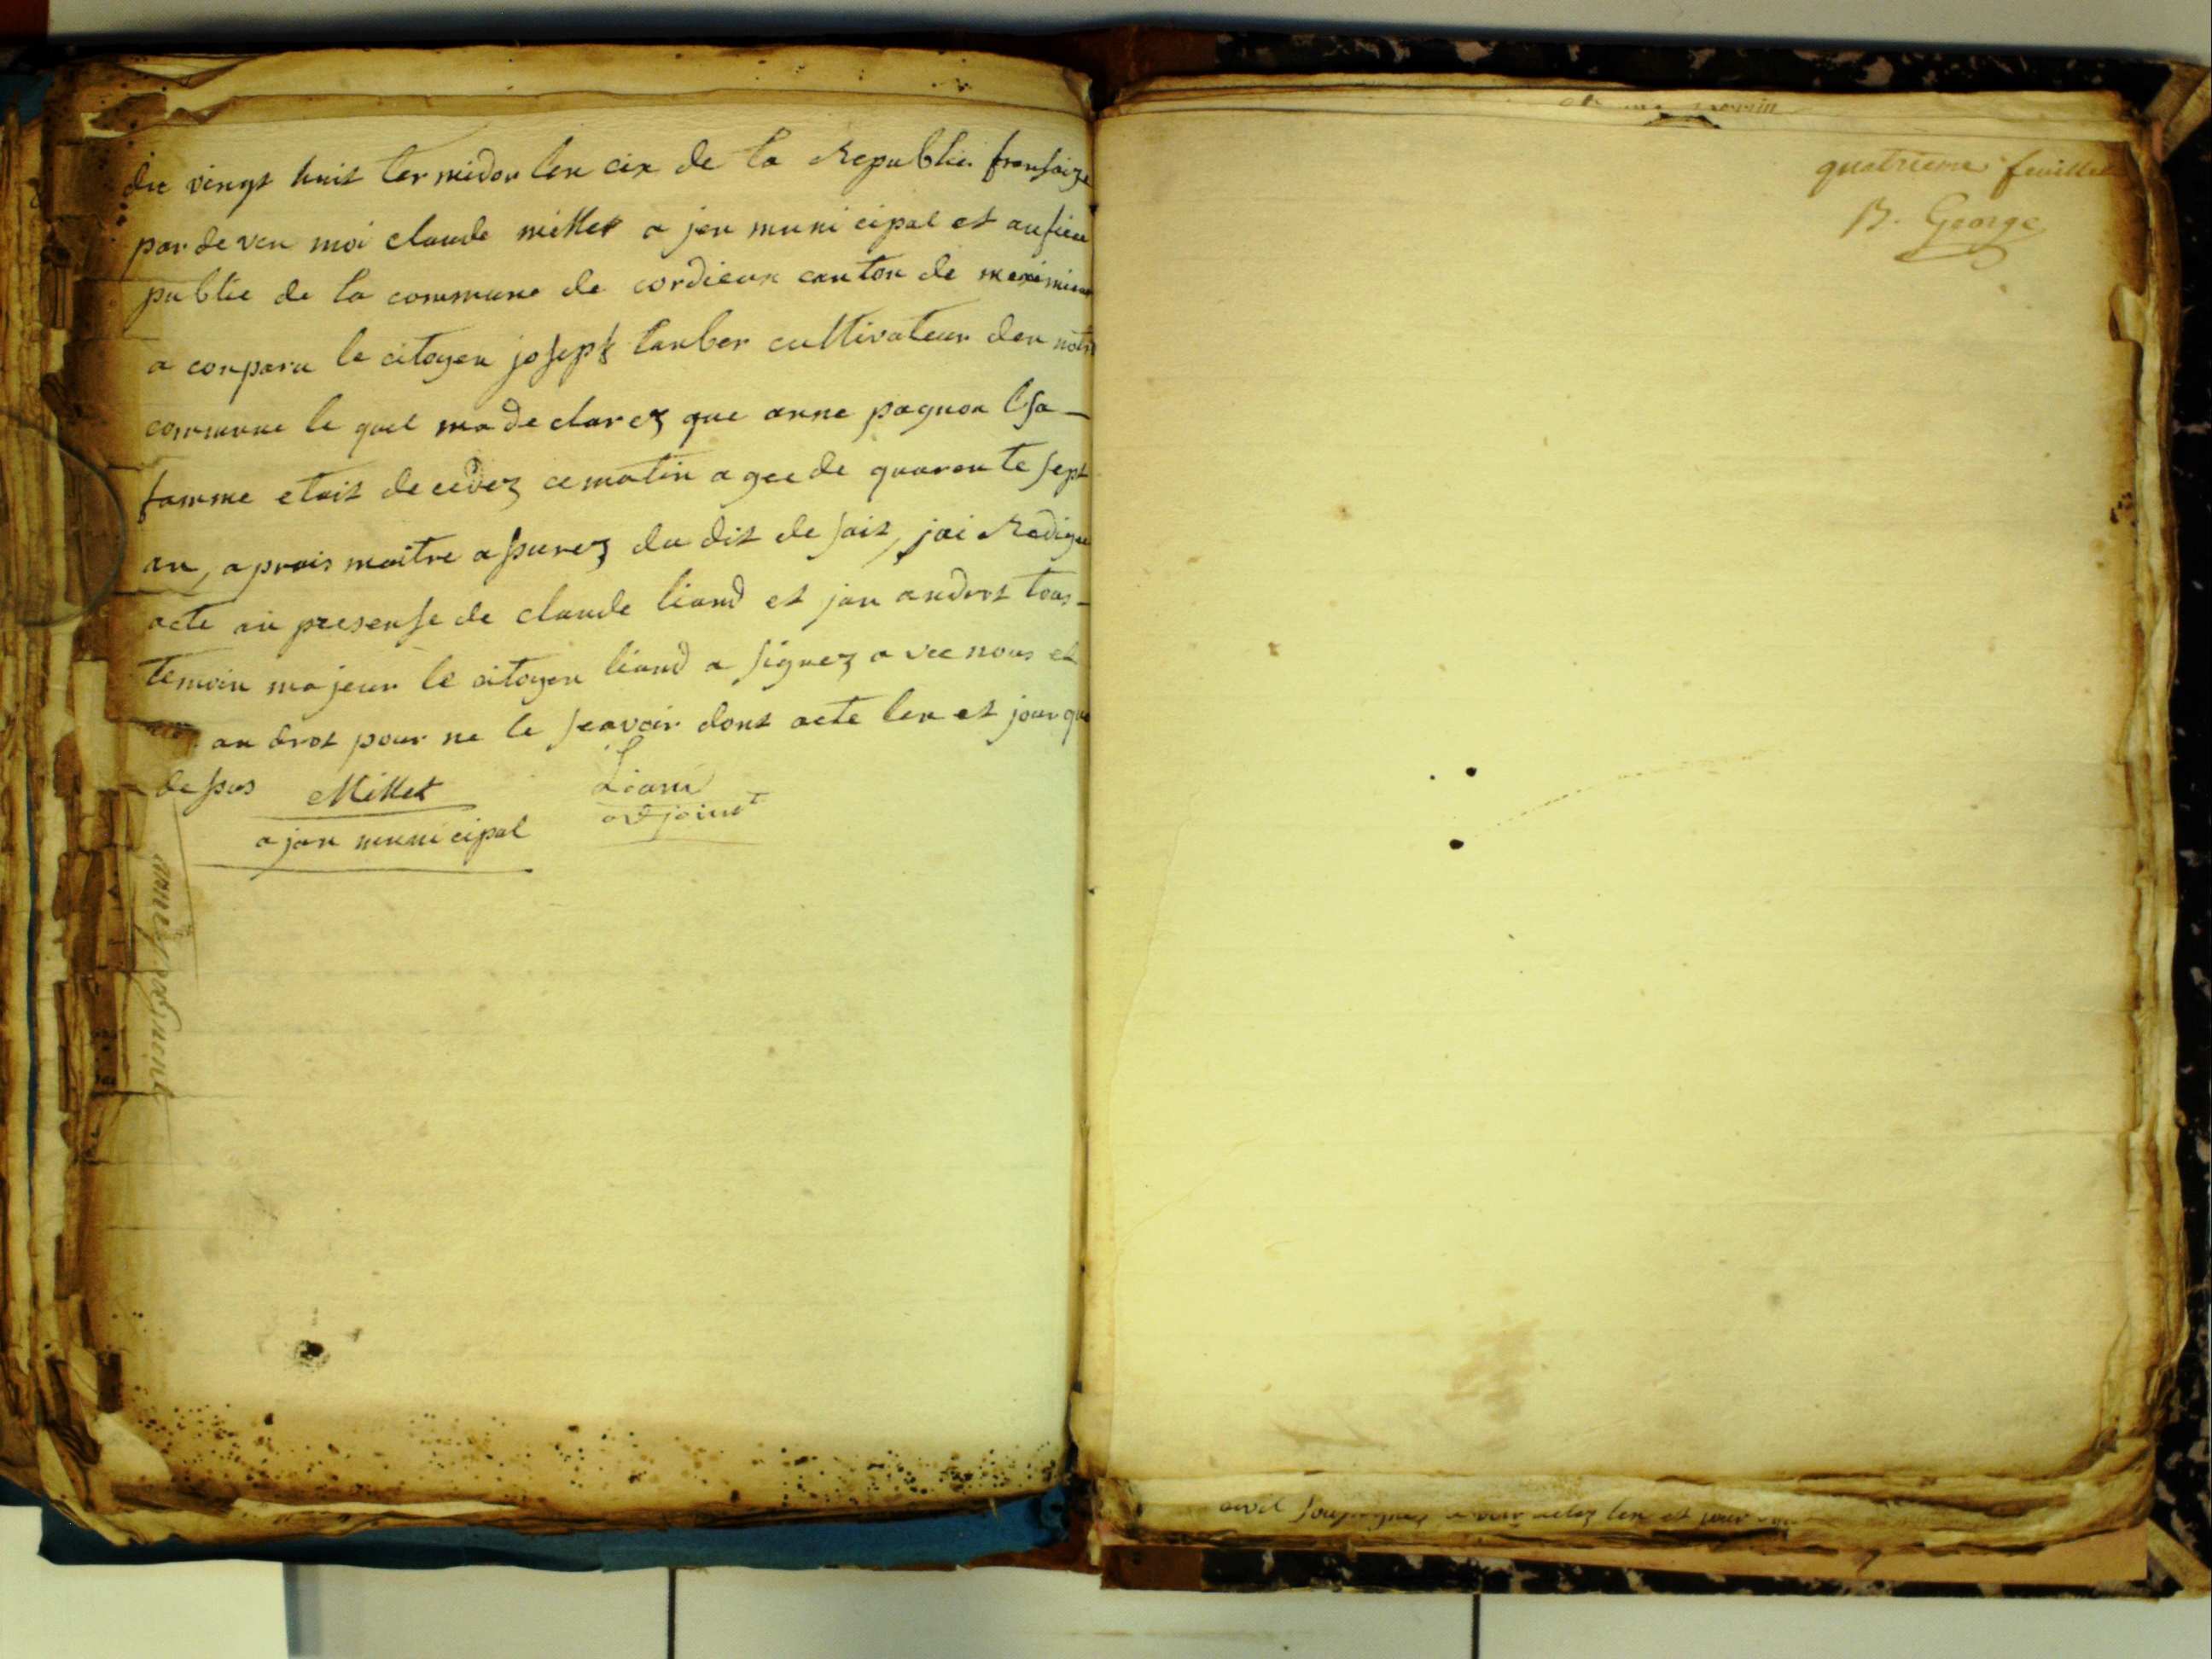 du vingt huit termidor len cix de la Republic fransaize
par de ven moi claude millet a jen muni cipal et aufisie
public de la commune de cordieux canton de meximieu
a conparu le citoyen joseph lanber cultivateur den notre
commune le quel ma de clarez que anne pagnon lsa
famme etait de cedez ce matin a gee de quarente sept
an, a prais maitre assurez du dit de sait, jai Redigee
acte an presense de claude liand et jan androt tous
temoin ma jeur le citoyen liand a signez a vec nous et
an drot pour ne le scavoir dont acte len et jour que
de sus Millet Liand
a jan muni cipal adjoint
quatrieme feuillet
B. George
len et jour